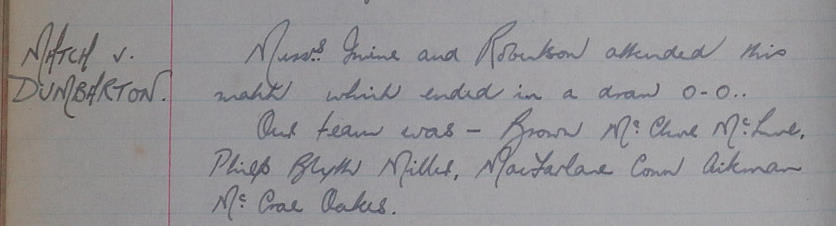 MATCH v.
DUMBARTON.
Messrs. Irvine and Robertson attended this
match which ended in a draw 0-0..
Our team was - Brown McClure McLure,
Philp Blyth Miller, MacFarlane Conn Aikman
McCrae Oakes.